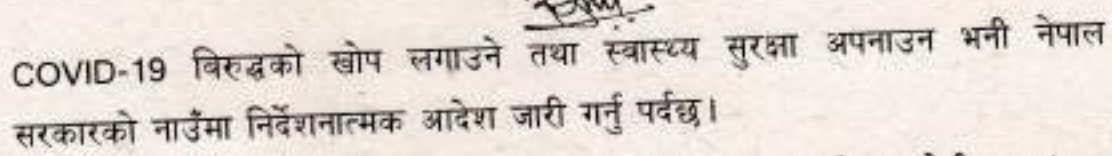 COVID-19 विरुद्धको खोप लगाउने तथा स्वास्थ्य सुरक्षा अपनाउन भनी नेपाल
सरकारको नाउँमा निर्देशनात्मक आदेश जारी गर्नु पर्दछ।